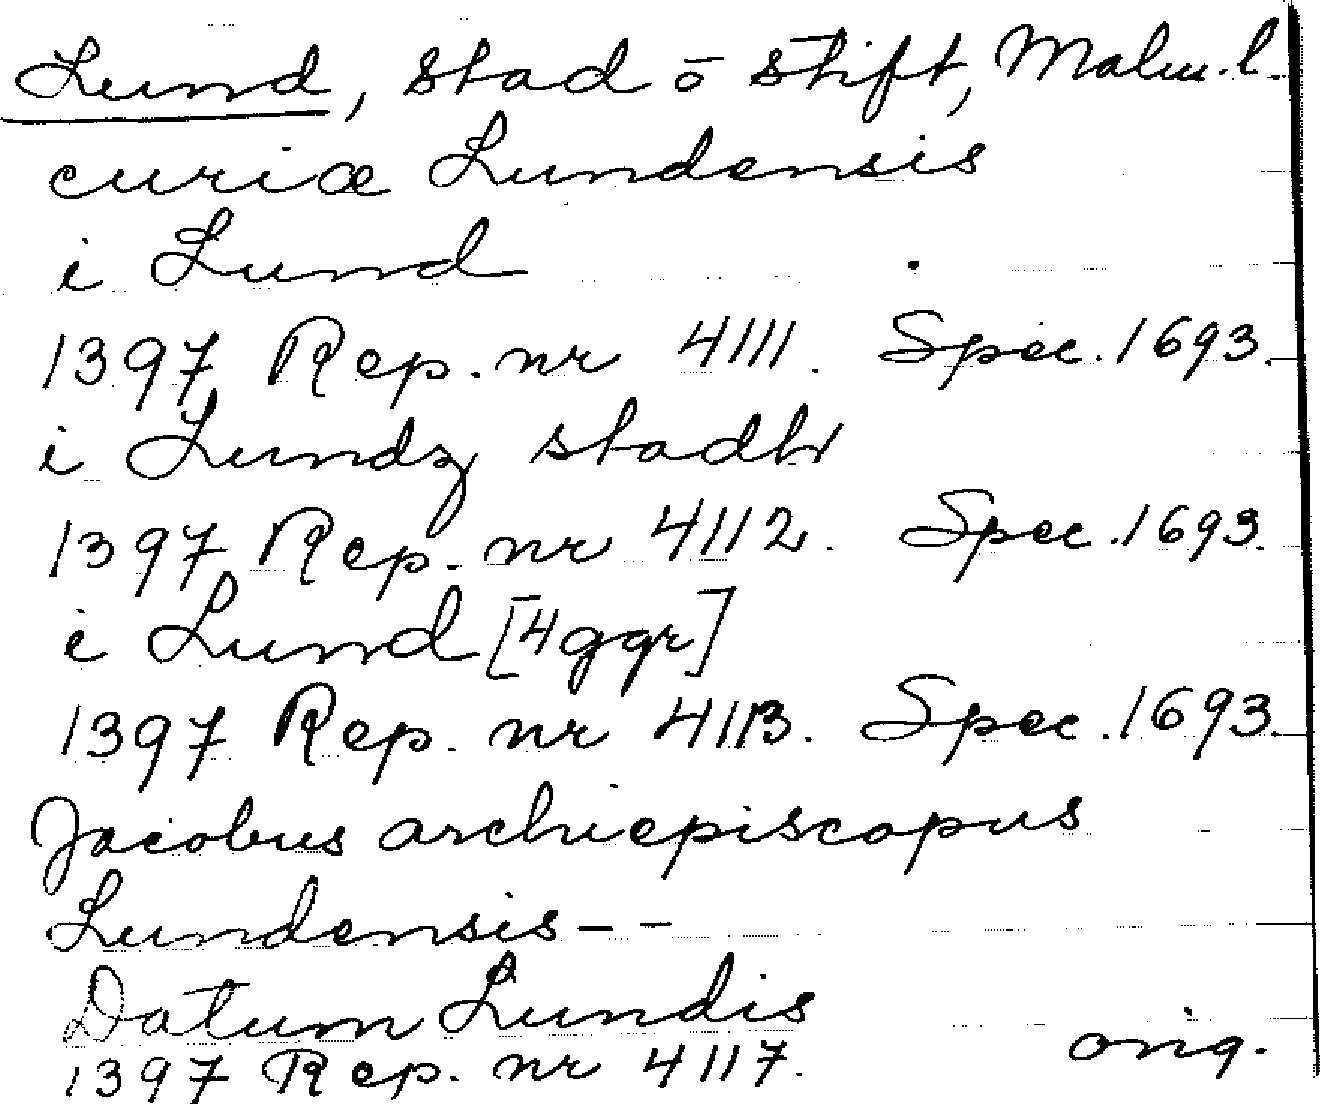 Lund, stad o stift, Malm.l.
curiæ Lundensis
i Lund
1397 Rep. nr 4111. Spec. 1693.
i Lundz stadh
1397 Rep. nr 4112. Spec. 1693.
i Lund [4 ggr]
1397 Rep. nr 4113. Spec. 1693.
Jacobus archiepiscopus
Lundensis - -
Datum Lundis
1397 Rep. nr 4117. orig.